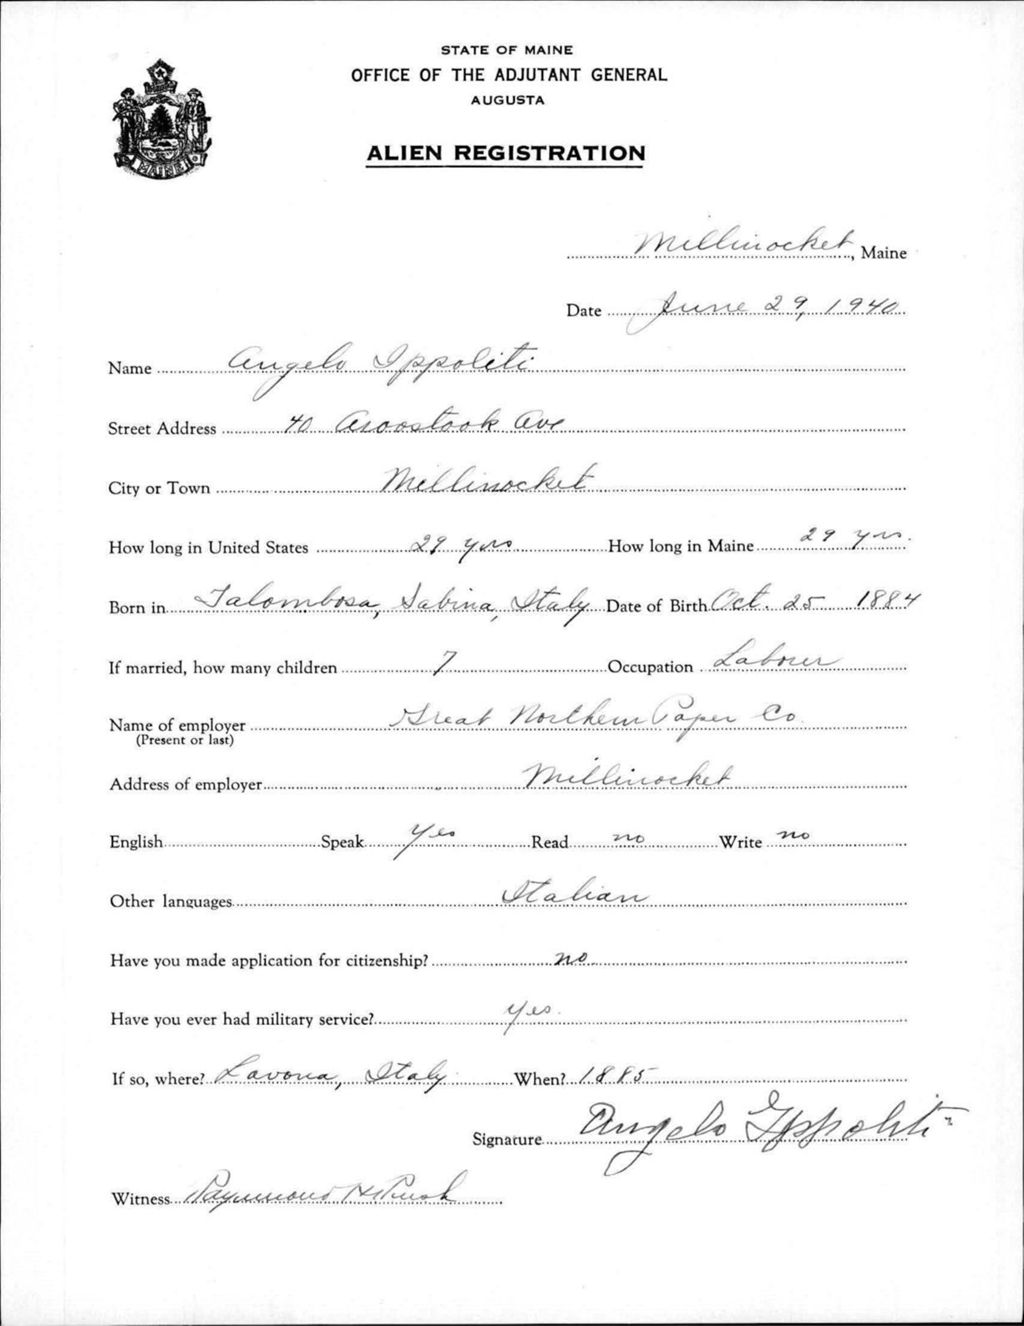 STATE OF MAINE
OFFICE OF THE ADJUTANT GENERAL
AUGUSTA
ALIEN REGISTRATION
MAINE
Millinocket, Maine
Date June 29, 1940
Name Angelo Ippoliti
Street Address 40 Aroostook Ave
City or Town Millinocket
How long in United States 29 yrs How long in Maine 29 yrs.
Born in Talombosa, Sabina, Italy Date of Birth Oct. 25 1884
If married, how many children 7 Occupation Laborer
Name of employer Great Northern Paper Co.
(Present or last)
Address of employer Millinocket
English Speak Yes Read no Write no
Other languages Italian
Have you made application for citizenship? no
Have you ever had military service? Yes.
If so, where? Italy When? 1885
Signature Angelo Ippoliti
Witness Raymond H.